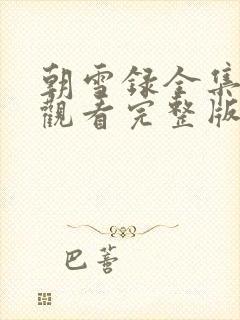 朝雪録全集
觀看完整版
巴蒼